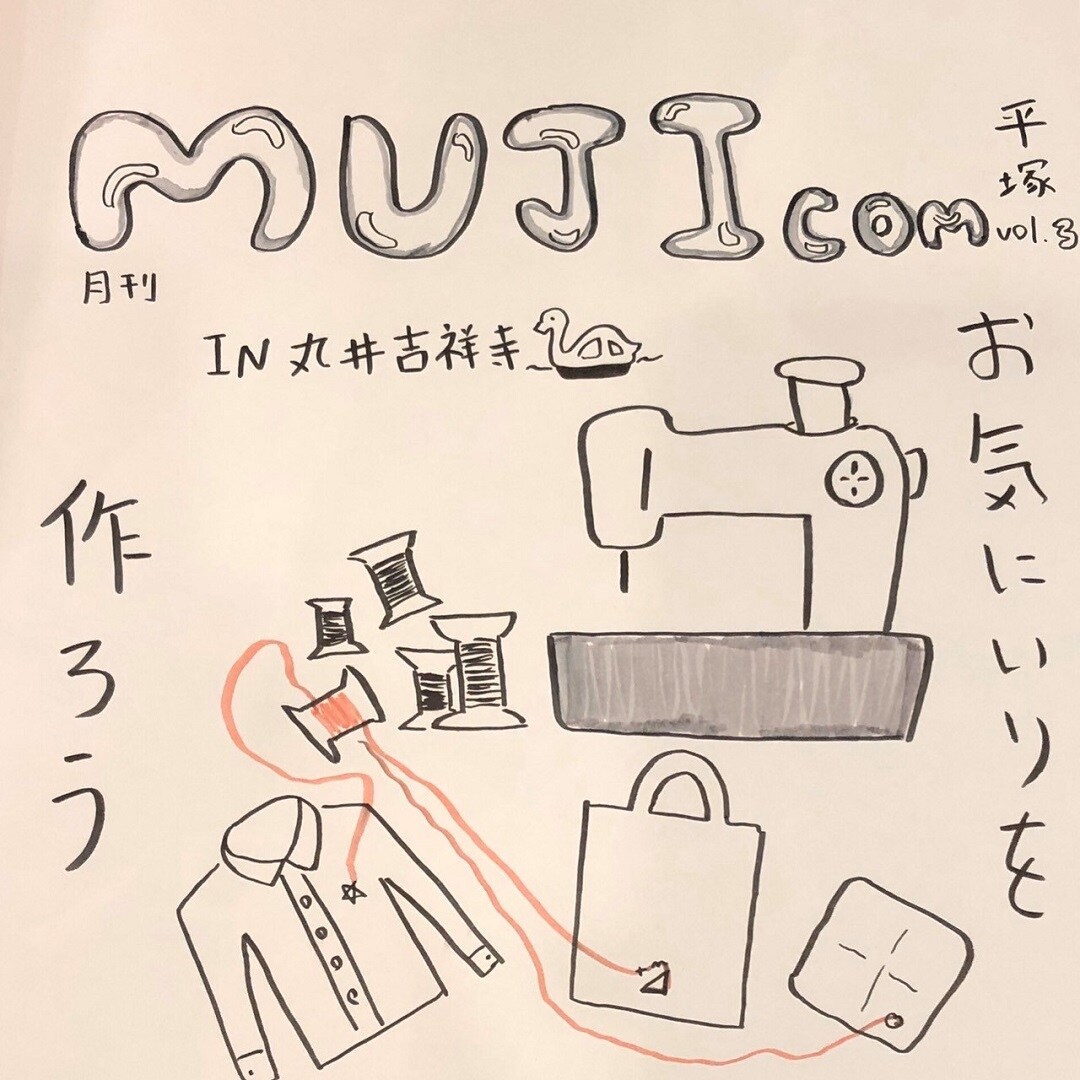 MUJIcom
平塚
vol.3
月刊
IN 丸井吉祥寺
お気にいりを
作ろう